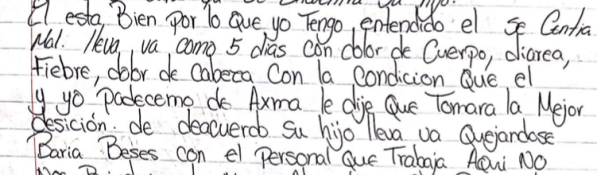 El esta Bien por lo Que yo Tengo entendido el se Centia
Mal. lleva va como 5 dias con dolor de Cuerpo, diarea,
Fiebre, dolor de Cabeza Con la Condicion Que el
y yo padecemo de Axma le dije Que Tomara la Mejor
desición. de deacuerdo Su hijo lleva va Quejandose
Baria Beses con el Personal Que Trabaja Aqui NO